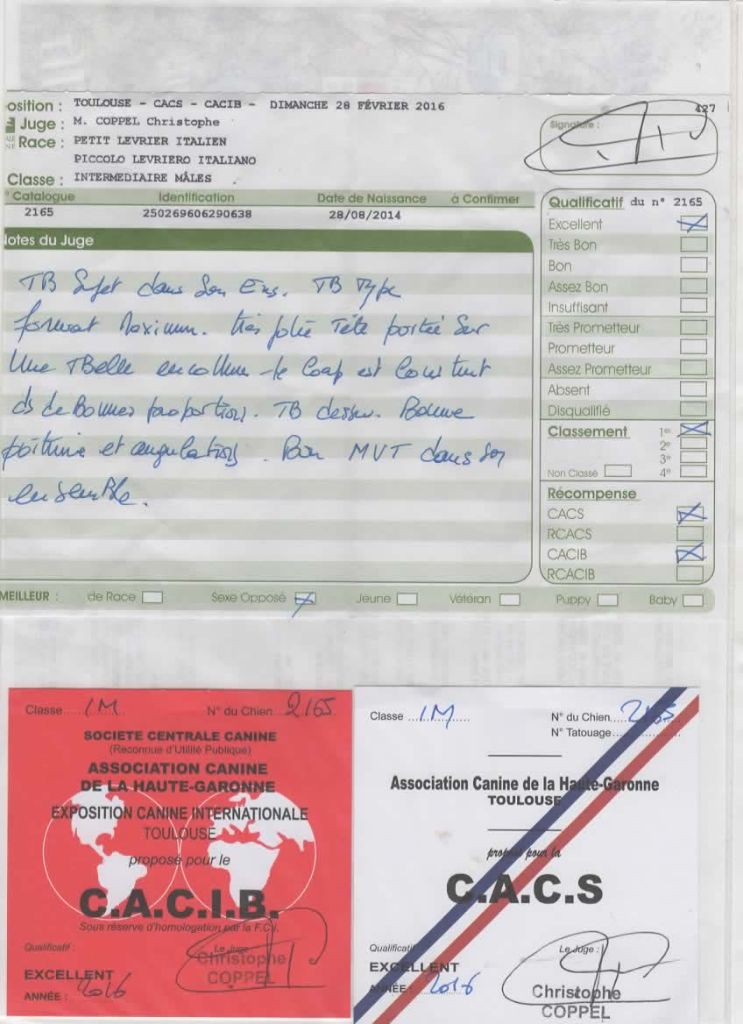 osition : TOULOUSE - CACS - CACIB - DIMANCHE 28 FÉVRIER 2016
427
Juge : M. COPPEL Christophe
Signature :
Race : PETIT LEVRIER ITALIEN
PICCOLO LEVRIERO ITALIANO
Classe : INTERMEDIAIRE MÂLES
° Catalogue Identification Date de Naissance à Confirmer
2165 250269606290638 28/08/2014
Qualificatif du n° 2165
Excellent
Très Bon
Bon
Assez Bon
Insuffisant
Très Prometteur
Prometteur
Assez Prometteur
Absent
Disqualifié
Classement 1er
2e
3e
Non Classé 4e
Récompense
CACS
RCACS
CACIB
RCACIB
Notes du Juge
TB Sujet dans Son Ens. TB Type
format Maximum. très jolie Tête portée Sur
Une TBelle encollure - le Corp est Construit
ds de Bonnes proportions. TB dessus. Bonne
poitrine et angulations. Bon MVT dans Son
ensemble.
MEILLEUR : de Race Sexe Opposé Jeune Vétéran Puppy Baby
Classe IM N° du Chien 2165
SOCIETE CENTRALE CANINE
(Reconnue d'Utilité Publique)
ASSOCIATION CANINE
DE LA HAUTE-GARONNE
EXPOSITION CANINE INTERNATIONALE
TOULOUSE
proposé pour le
C.A.C.I.B.
Sous réserve d'homologation par la F.C.I.
Qualificatif : Le Juge
Christophe
EXCELLENT COPPEL
ANNÉE : 2016
Classe IM N° du Chien 2165
N° Tatouage
Association Canine de la Haute-Garonne
TOULOUSE
proposé pour la
C.A.C.S
Qualificatif Le Juge :
EXCELLENT
ANNÉE : 2016 Christophe
COPPEL